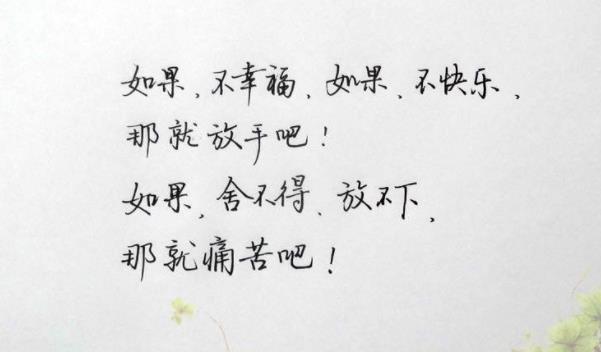 如果、不幸福、如果、不快乐、
那就放手吧！
如果、舍不得、放不下、
那就痛苦吧！